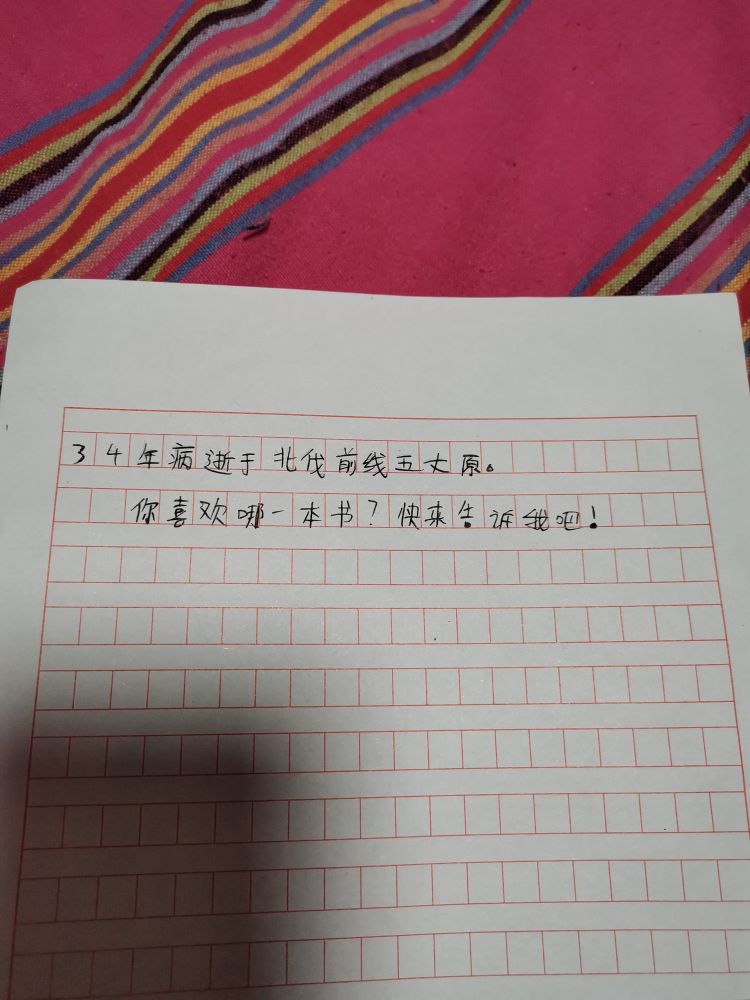 34年病逝于北伐前线五丈原。
你喜欢哪一本书?快来告诉我吧!